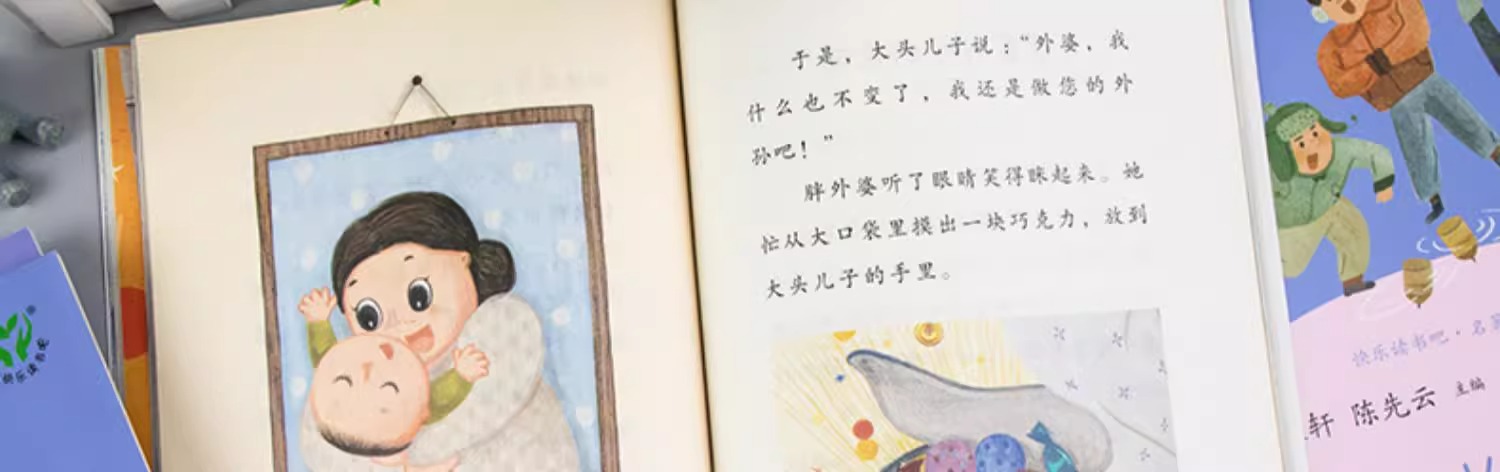 于是，大头儿子说：“外婆，我
什么也不变了，我还是做您的外
孙吧！”
胖外婆听了眼睛笑得眯起来。她
忙从大口袋里摸出一块巧克力，放到
大头儿子的手里。
快乐读书吧·名家
轩 陈先云 主编
快乐读书吧
®